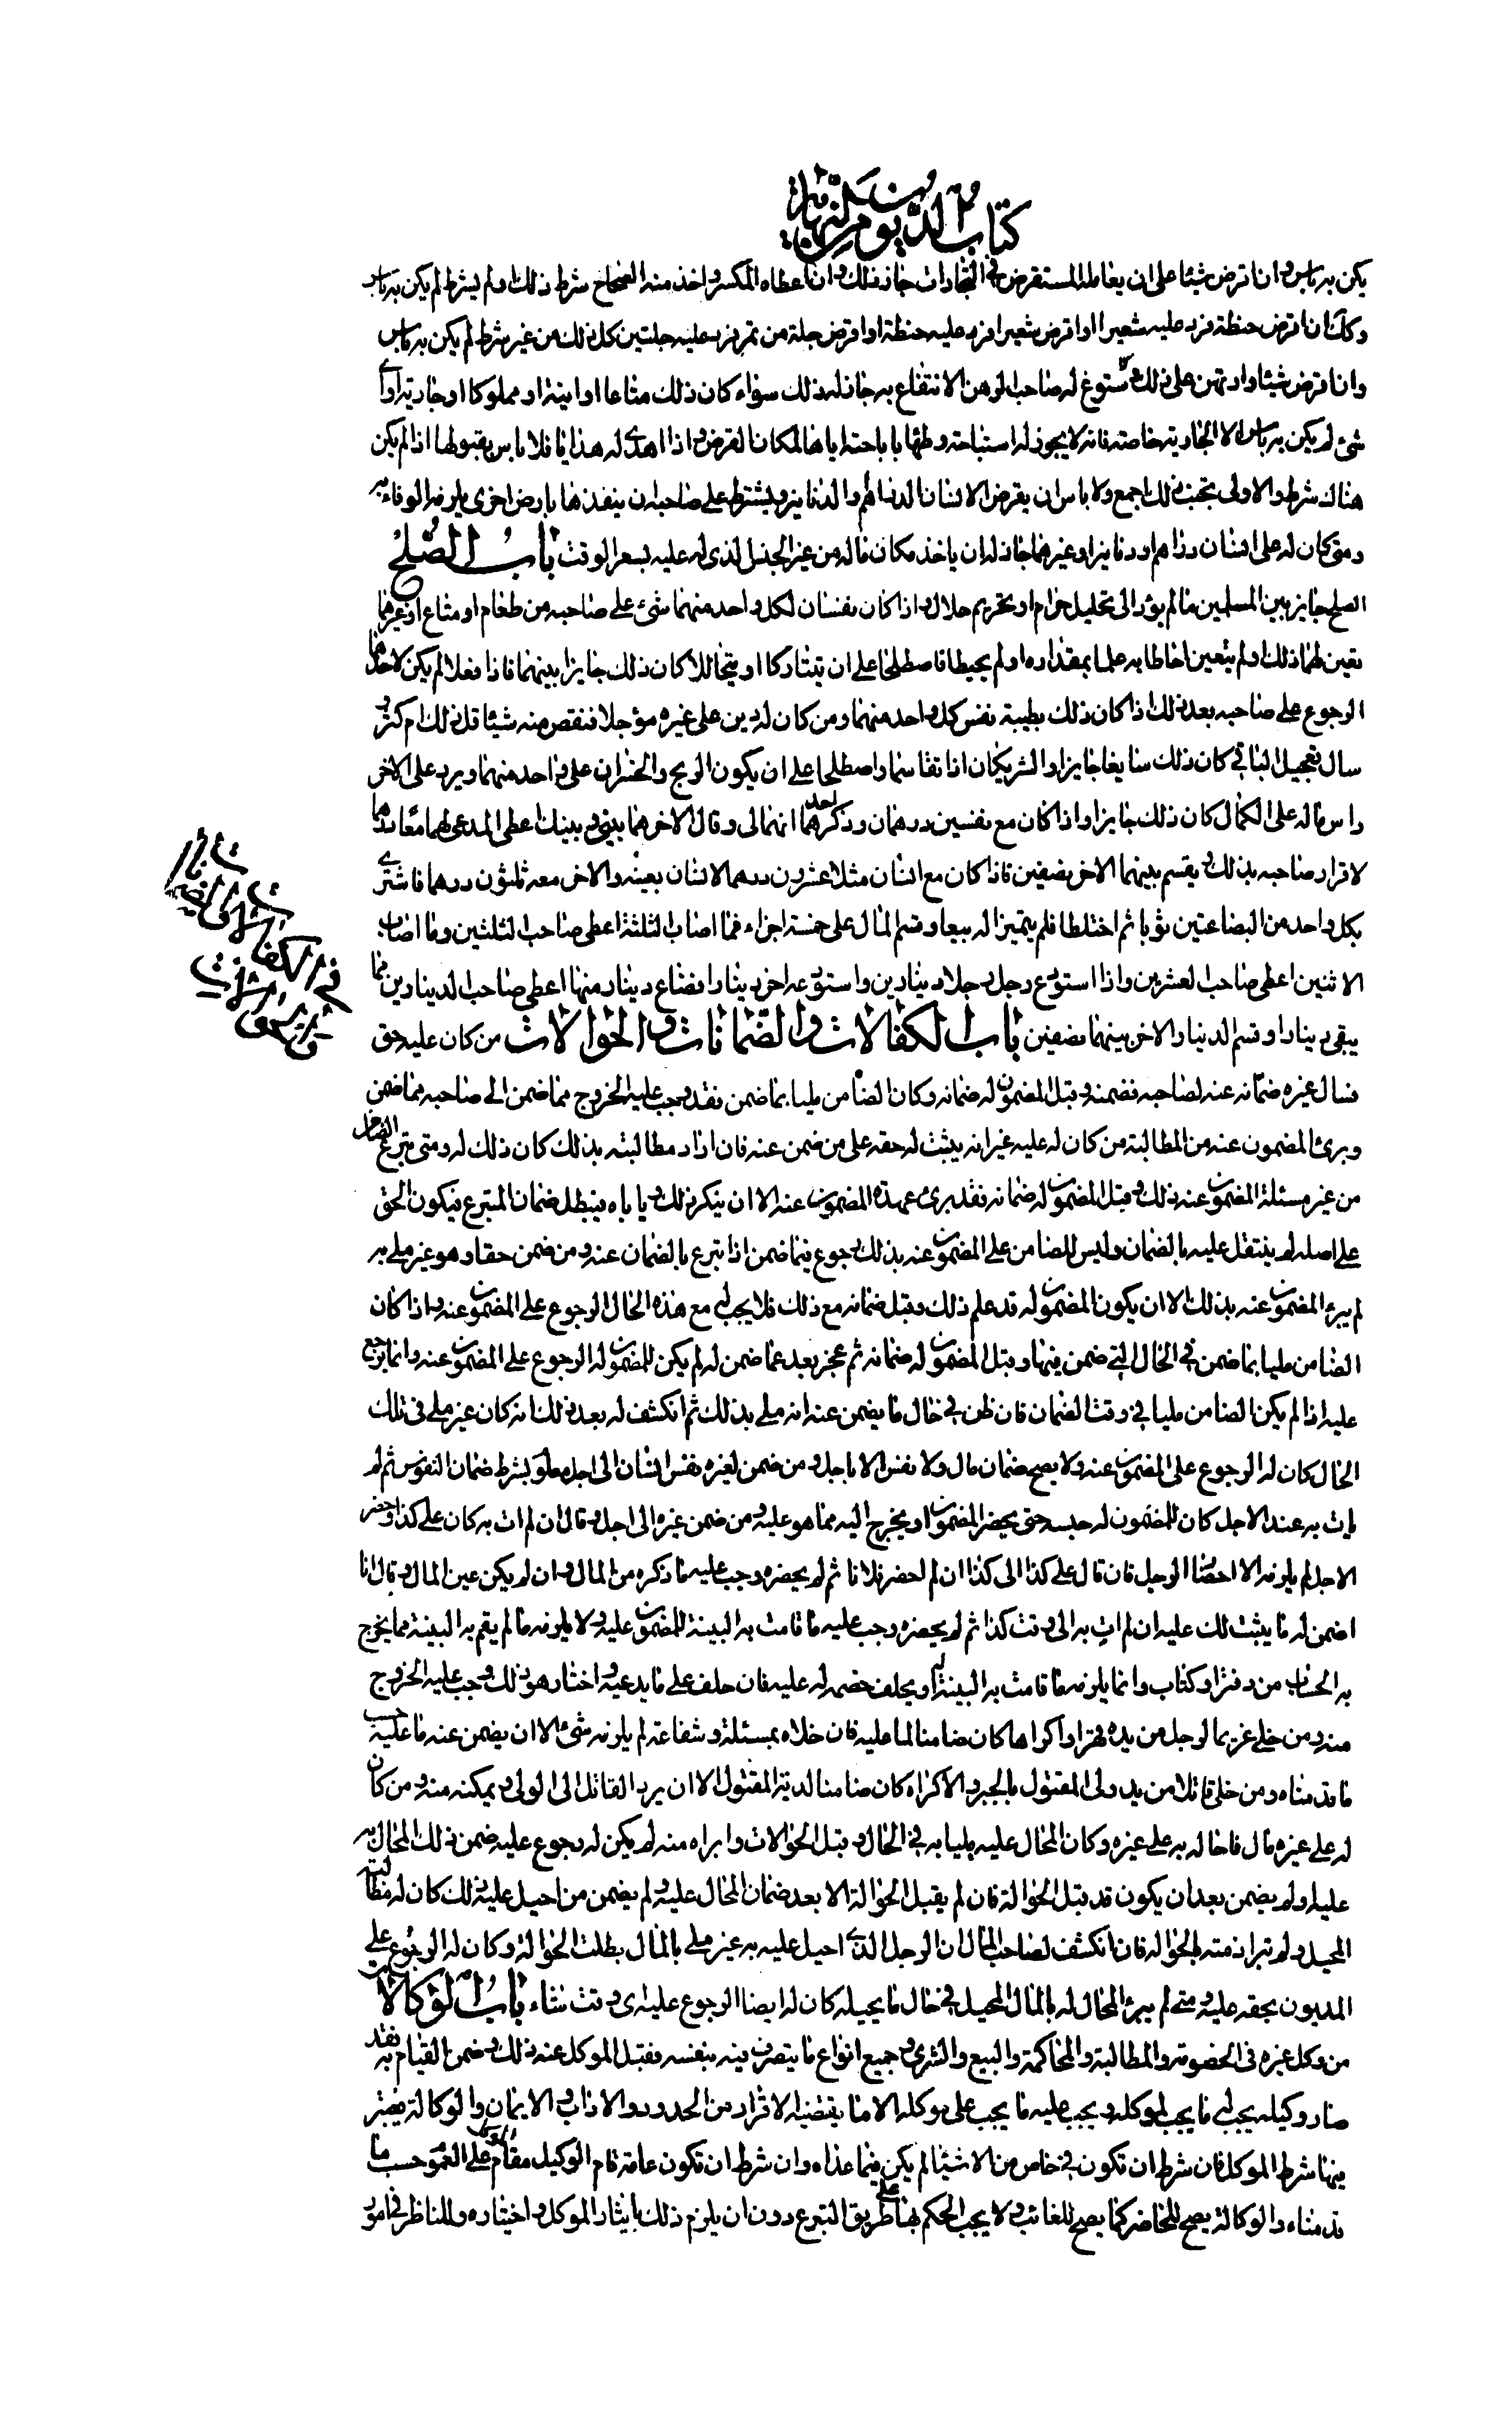 كتاب الديون من النهاية
يكن به باس وان اقرض شيئا على ان يعامله المستقرض في التجارات جاز ذلك وان اعطاه المكسر واخذ منه الصحاح شرط ذلك ولم يشرط لم يكن به باس
وكك ان اقرض حنطة فرد عليه شعيرا او اقرض شعيرا فرد عليه حنطة او اقرض جلة من تمر فرد عليه جلتين كل ذلك من غير شرط لم يكن به باس
وان اقرض شيئا وارتهن على ذلك وسوغ له صاحب الرهن الانتفاع به جاز له ذلك سواء كان ذلك متاعا او انية او مملوكا او جارية او اي
شئ لم يكن به باس الا الجارية خاصة فانه لا يجوز له استباحة وطئها باباحته اياها لمكان القرض واذا اهدى له هدايا فلا باس بقبولها اذا لم يكن
هناك شرط والاولى تجنب ذلك اجمع ولا باس ان يقرض الانسان الدراهم والدنانير ويشترط على صاحبه ان ينفذها بارض اخرى يلزمه الوفاء به
ومتى كان له على انسان دراهم او دنانير او غيرهما جاز له ان ياخذ مكان ماله من غير الجنس الذي له عليه بسعر الوقت باب الصلح
الصلح جايز بين المسلمين ما لم يؤد الى تحليل حرام او تحريم حلال واذا كان نفسان لكل واحد منهما شئ على صاحبه من طعام او متاع او غيرهما
تعين لهما ذلك ولم يتعين احاطا به علما بمقداره او لم يحيطا فاصطلحا على ان يتتاركا او يتحاللا كان ذلك جايزا بينهما فاذا فعلا لم يكن لاحدهما
الرجوع على صاحبه بعد ذلك اذا كان ذلك بطيبة نفس كل واحد منهما ومن كان له دين على غيره مؤجلا فنقص منه شيئا قل ذلك ام كثر و
سال تعجيل الباقي كان ذلك سايغا جايزا والشريكان اذا تقاسما واصطلحا على ان يكون الربح والخسران على واحد منهما ويرد على الاخر
راس ماله على الكمال كان ذلك جايزا واذا كان مع نفسين درهمان وذكر احدهما انهما لي وقال الاخر هما بيني وبينك اعطى المدعي لهما معا احدهما
لاقرار صاحبه بذلك ويقسم بينهما الاخر نصفين فاذا كان مع انسان مثلا عشرون درهما لانسان بعينه والاخر معه ثلثون درهما فاشترى
بكل واحد من البضاعتين ثوبا ثم اختلطا فلم يتميزا له بيعا وقسم المال على خمسة اجزاء فما اصاب الثلثة اعطى صاحب الثلثين وما اصاب
الاثنين اعطى صاحب العشرين واذا استودع رجل رجلا دينارين واستودعه اخر دينارا فضاع دينار منها اعطى صاحب الدينارين مما
يبقى دينارا وقسم الدينار الاخر بينهما نصفين باب الكفالات والضمانات والحوالات من كان عليه حق
فسال غيره ضمانه عنه لصاحبه فضمنه وقبل المضمون له ضمانه وكان الضامن مليا بما ضمن فقد وجب عليه الخروج مما ضمن الى صاحبه بما ضمن
وبرئ المضمون عنه من المطالبة من كان له عليه غير انه يثبت له حقه على من ضمن عنه فان اراد مطالبته بذلك كان ذلك له ومتى تبرع الضامن
من غير مسئلة المضمون عنه ذلك وقبل المضمون له ضمانه فقد برئ عهدة المضمون عنه الا ان ينكر ذلك وياباه فيبطل ضمان المتبرع فيكون الحق
على اصله لم ينتقل عليه بالضمان وليس للضامن على المضمون عنه بذلك رجوع فيما ضمن اذا تبرع بالضمان عنه ومن ضمن حقا وهو غير ملي به
لم يبرئ المضمون عنه بذلك الا ان يكون المضمون له قد علم ذلك وقبل ضمانه مع ذلك فلا يجب له مع هذه الحال الرجوع على المضمون عنه واذا كان
الضامن مليا بما ضمن في الحال التي ضمن فيها وقبل المضمون له ضمانه ثم عجز بعد عما ضمن له لم يكن للمضمون له الرجوع على المضمون عنه وانما يرجع
عليه اذا لم يكن الضامن مليا في وقت الضمان فان ظن في حال ما يضمن عنه انه ملي بذلك ثم انكشف له بعد ذلك انه كان غير ملي في تلك
الحال كان له الرجوع على المضمون عنه ولا يصح ضمان مال ولا نفس الا باجل ومن ضمن لغيره نفس انسان الى اجل معلوم بشرط ضمان النفوس ثم لم
يات به عند الاجل كان للمضمون له حبسه حتى يحضر المضمون او يخرج اليه مما هو عليه ومن ضمن غيره الى اجل وقال ان لم ات به كان علي كذا وحضر
الاجل لم يلزمه الا احضار الرجل فان قال علي كذا الى كذا ان لم احضر فلانا ثم لم يحضره وجب عليه ما ذكره من المال وان لم يكن عين المال وقال انا
اضمن له ما يثبت لك عليه ان لم ات به الى وقت كذا ثم لم يحضره وجب عليه ما قامت به البينة للمضمون عليه ولا يلزمه ما لم يقم به البينة مما يخرج
به الحساب من دفتر او كتاب وانما يلزمه ما قامت به البينة له او يحلف خصمه له عليه فان حلف على ما يدعيه واختار هو ذلك وجب عليه الخروج
منه ومن خلى غريما لرجل من يده قهرا واكراها كان ضامنا لما عليه فان خلاه بمسئلة وشفاعة لم يلزمه شئ الا ان يضمن عنه ما عليه حسب
ما قدمناه ومن خلى قاتلا من يد ولي المقتول بالجبر والاكراه كان ضامنا لدية المقتول الا ان يرد القاتل الى الولي ويمكنه منه ومن كان
له على غيره مال فاحاله به على غيره وكان المحال عليه مليا به في الحال وقبل الحوالات وابراه منه لم يكن له رجوع عليه ضمن ذلك المحال به
عليه او لم يضمن بعد ان يكون قد قبل الحوالة فان لم يقبل الحوالة الا بعد ضمان المحال عليه ولم يضمن من احيل عليه ذلك كان له مطالبة
المحيل ولم تبرا ذمته بالحوالة فان انكشف لصاحب المال ان الرجل الذي احيل عليه به غير ملي بالمال بطلت الحوالة وكان له الرجوع على
المديون بحقه عليه ومتى لم يبرئ المحال له بالمال المحيل في حال ما يحيله كان له ايضا الرجوع عليه اي وقت شاء باب الوكالات
من وكل غيره في الخصومة والمطالبة والمحاكمة والبيع والشرى وجميع انواع ما يتصرف فيه بنفسه فقبل الموكل عنه ذلك وضمن القيام به فقد
صار وكيله يجب له ما يجب لموكله ويجب عليه ما يجب على موكله الا ما يقتضيه الاقرار من الحدود والاداب والايمان والوكالة يعتبر
فيها شرط الموكل فان شرط ان تكون في خاص من الاشياء لم يكن فيما عداه وان شرط ان تكون عامة قام الوكيل مقام الموكل على العموم حسب ما
قدمناه والوكالة يصح للحاضر كما يصح للغائب ولا يجب الحكم بها على طريق التبرع دون ان يلزم ذلك بايثار الموكل واختياره وللناظر في امور